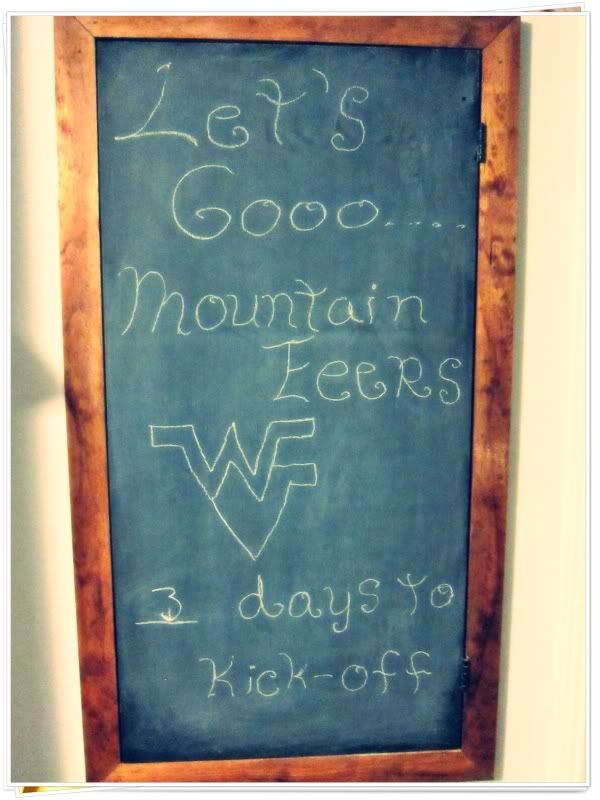 Let's
Gooo.....
Mountain
EEERS
WV
3 days to
Kick-off